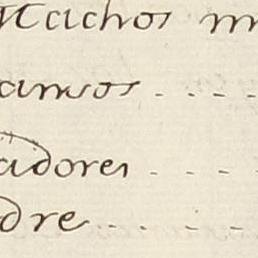 Machos m
ansos - - - -
adores - - -
dre - - - -